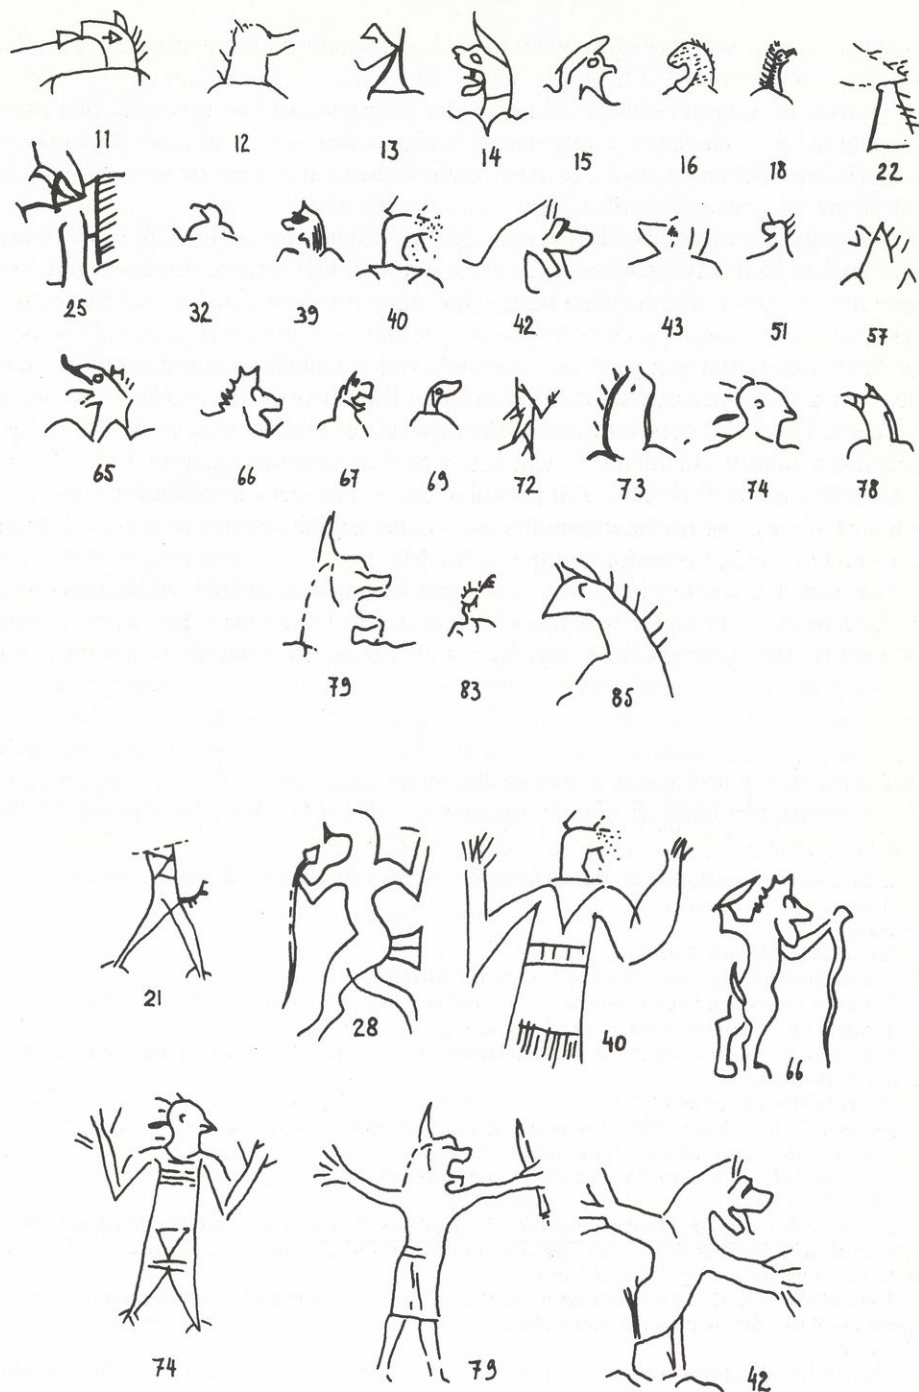 11 12 13 14 15 16 18 22
25 32 39 40 42 43 51 57
65 66 67 69 72 73 74 78
79 83 85
21 28 40 66
74 79 42